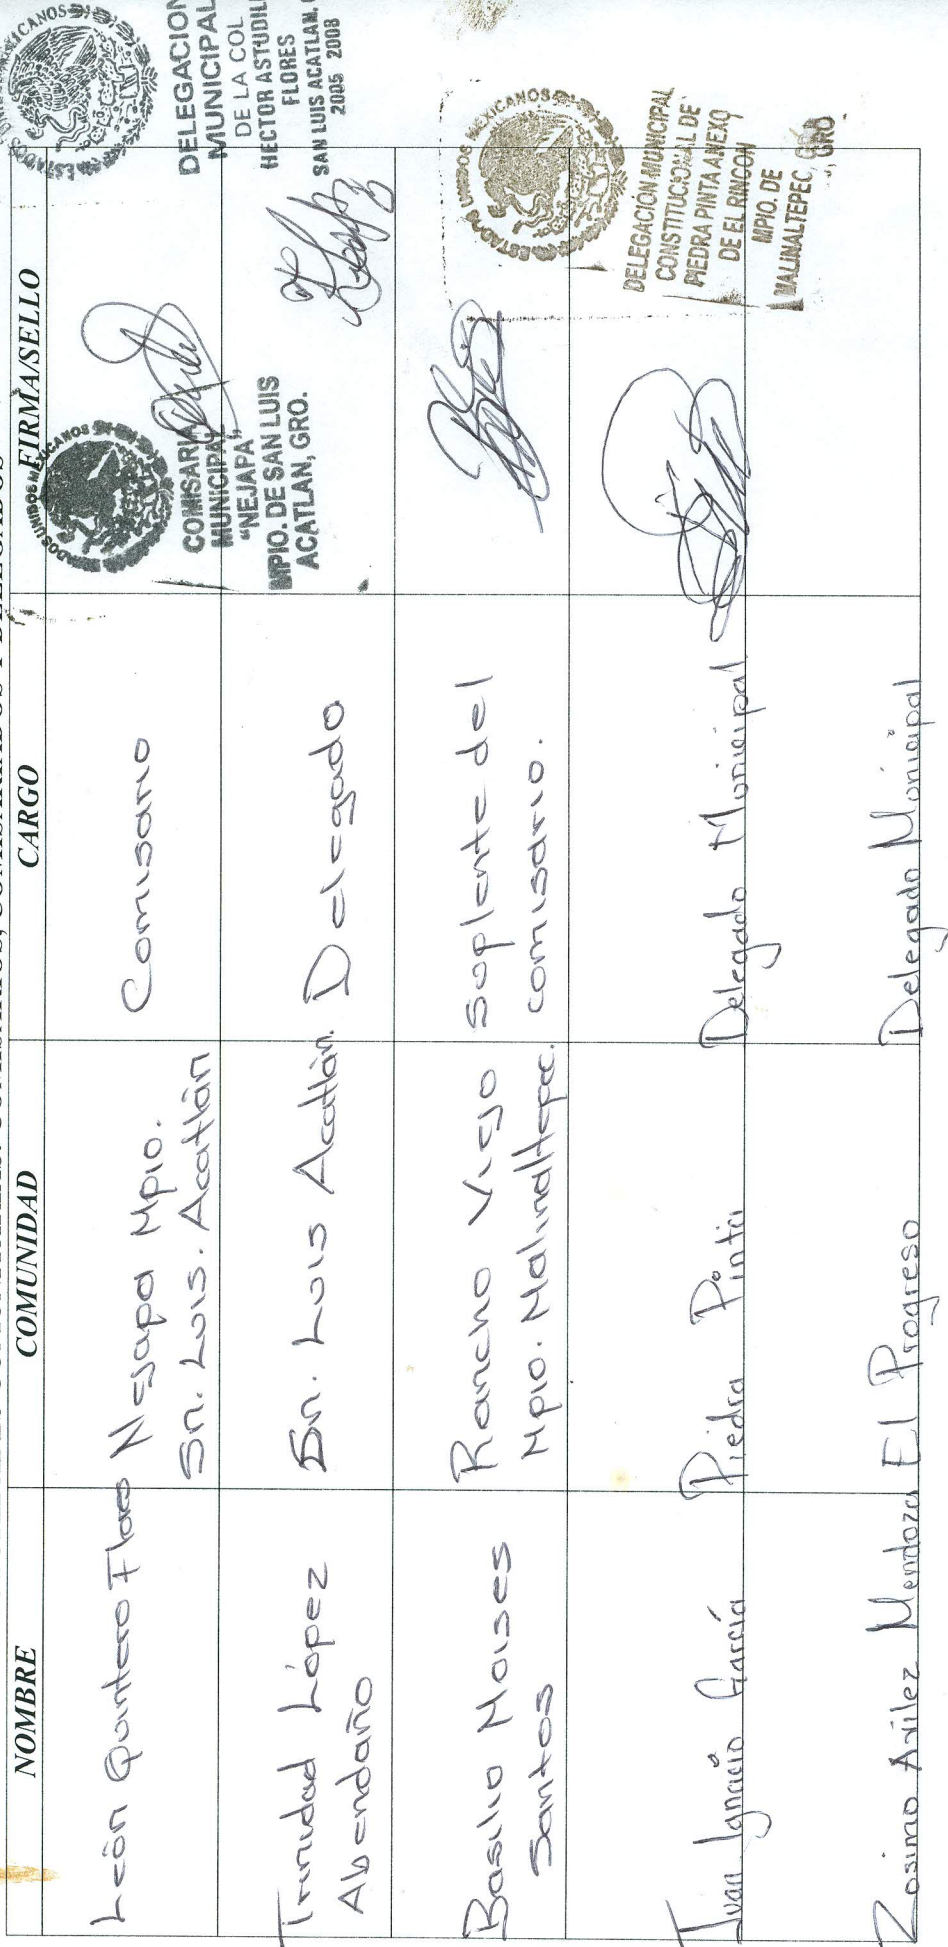 NOMBRE COMUNIDAD CARGO FIRMA/SELLO
León Quintero Flores
Nejapa Mpio.
Sn. Luis. Acatlán
Comisario
ESTADOS UNIDOS MEXICANOS
COMISARIA
MUNICIPAL
"NEJAPA"
MPIO. DE SAN LUIS
ACATLAN, GRO.
ESTADOS UNIDOS MEXICANOS
DELEGACION
MUNICIPAL
DE LA COL
HECTOR ASTUDILLO
FLORES
SAN LUIS ACATLAN,
2005 2008
Trinidad López
Abendaño
Sn. Luis Acatlán.
Delegado
Basilio Moises
Santos
Rancho Viejo
Mpio. Malinaltepec.
Suplente del
comisario.
Juan Ignacio García
Piedra Pinta
Delegado Municipal
ESTADOS UNIDOS MEXICANOS
DELEGACIÓN MUNICIPAL
CONSTITUCIONAL DE
PIEDRA PINTA ANEXO
DE EL RINCON
MPIO. DE
MALINALTEPEC, GRO
GRO
Zosimo Avilez Mendoza
El Progreso
Delegado Municipal